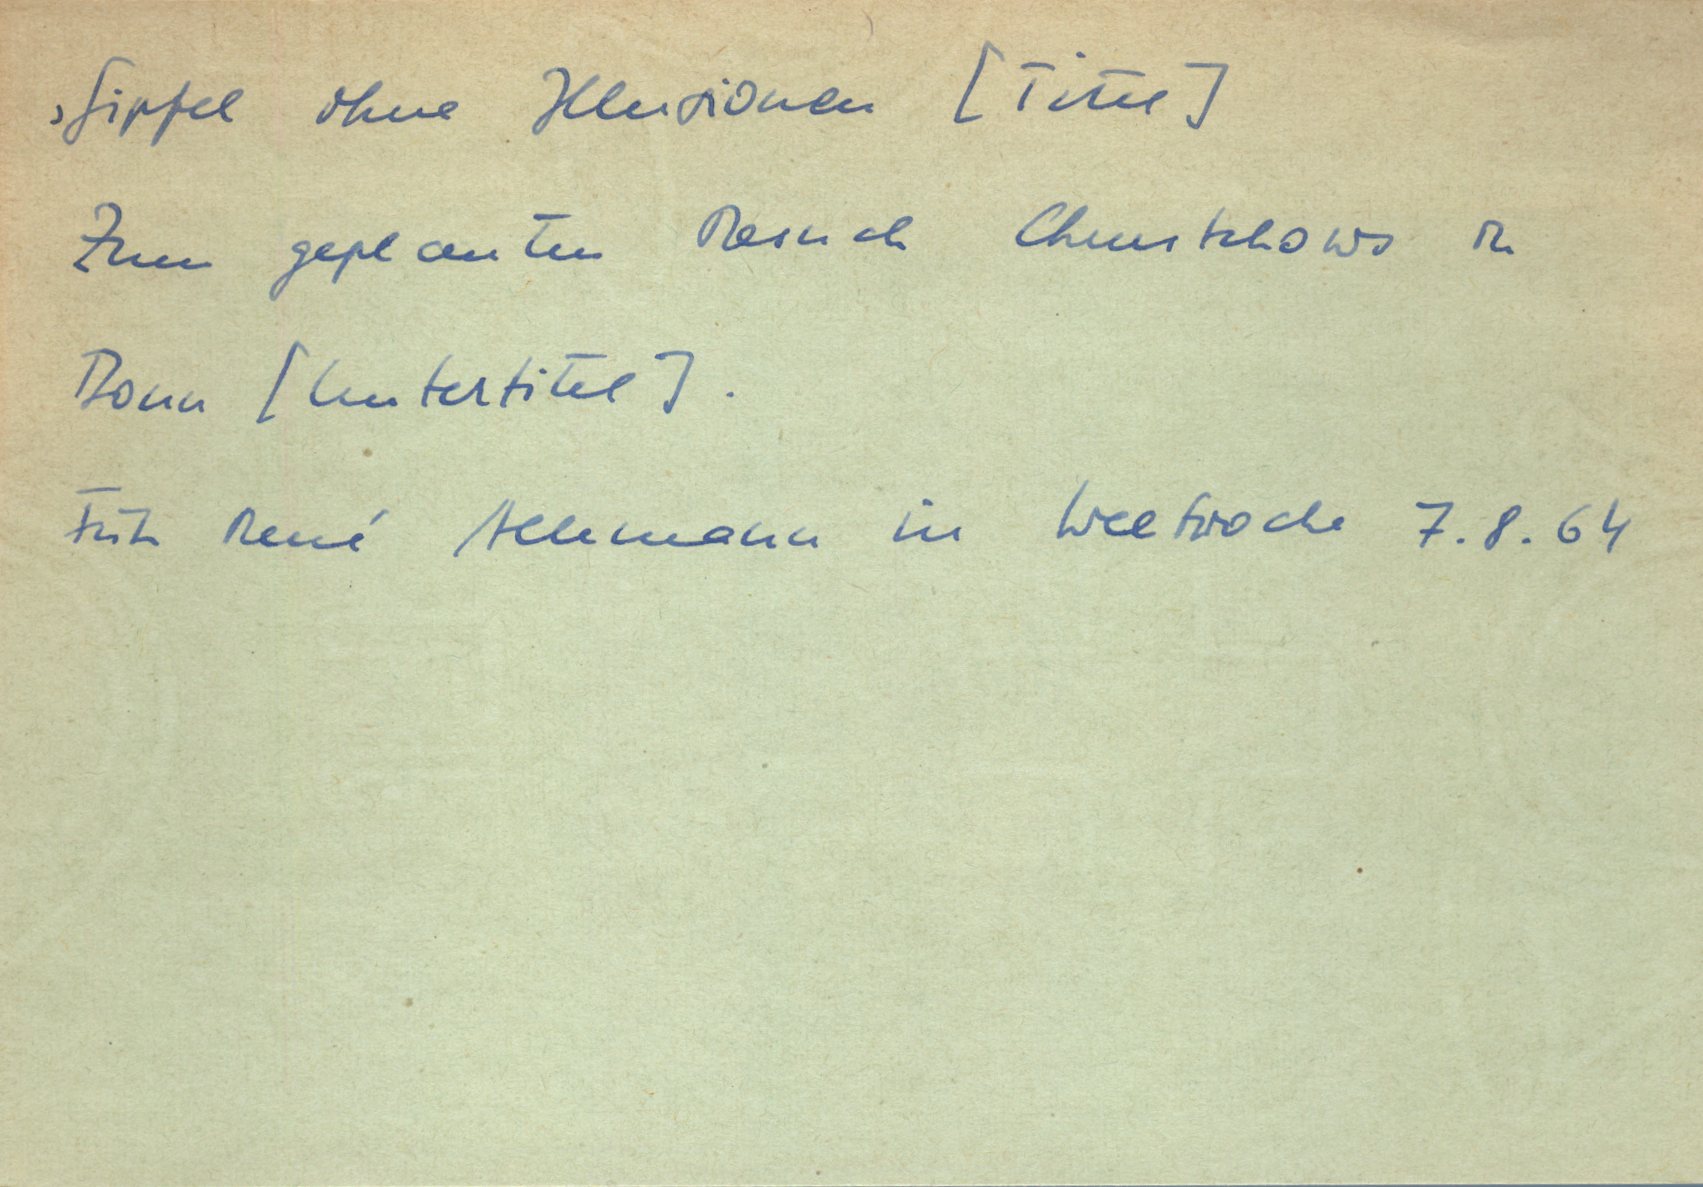 Gipfel ohne Illusionen [Titel]
Zum geplanten Besuch Chrustschows in
Bonn [Untertitel].
Fritz René Allemann in Weltwoche 7.8.64